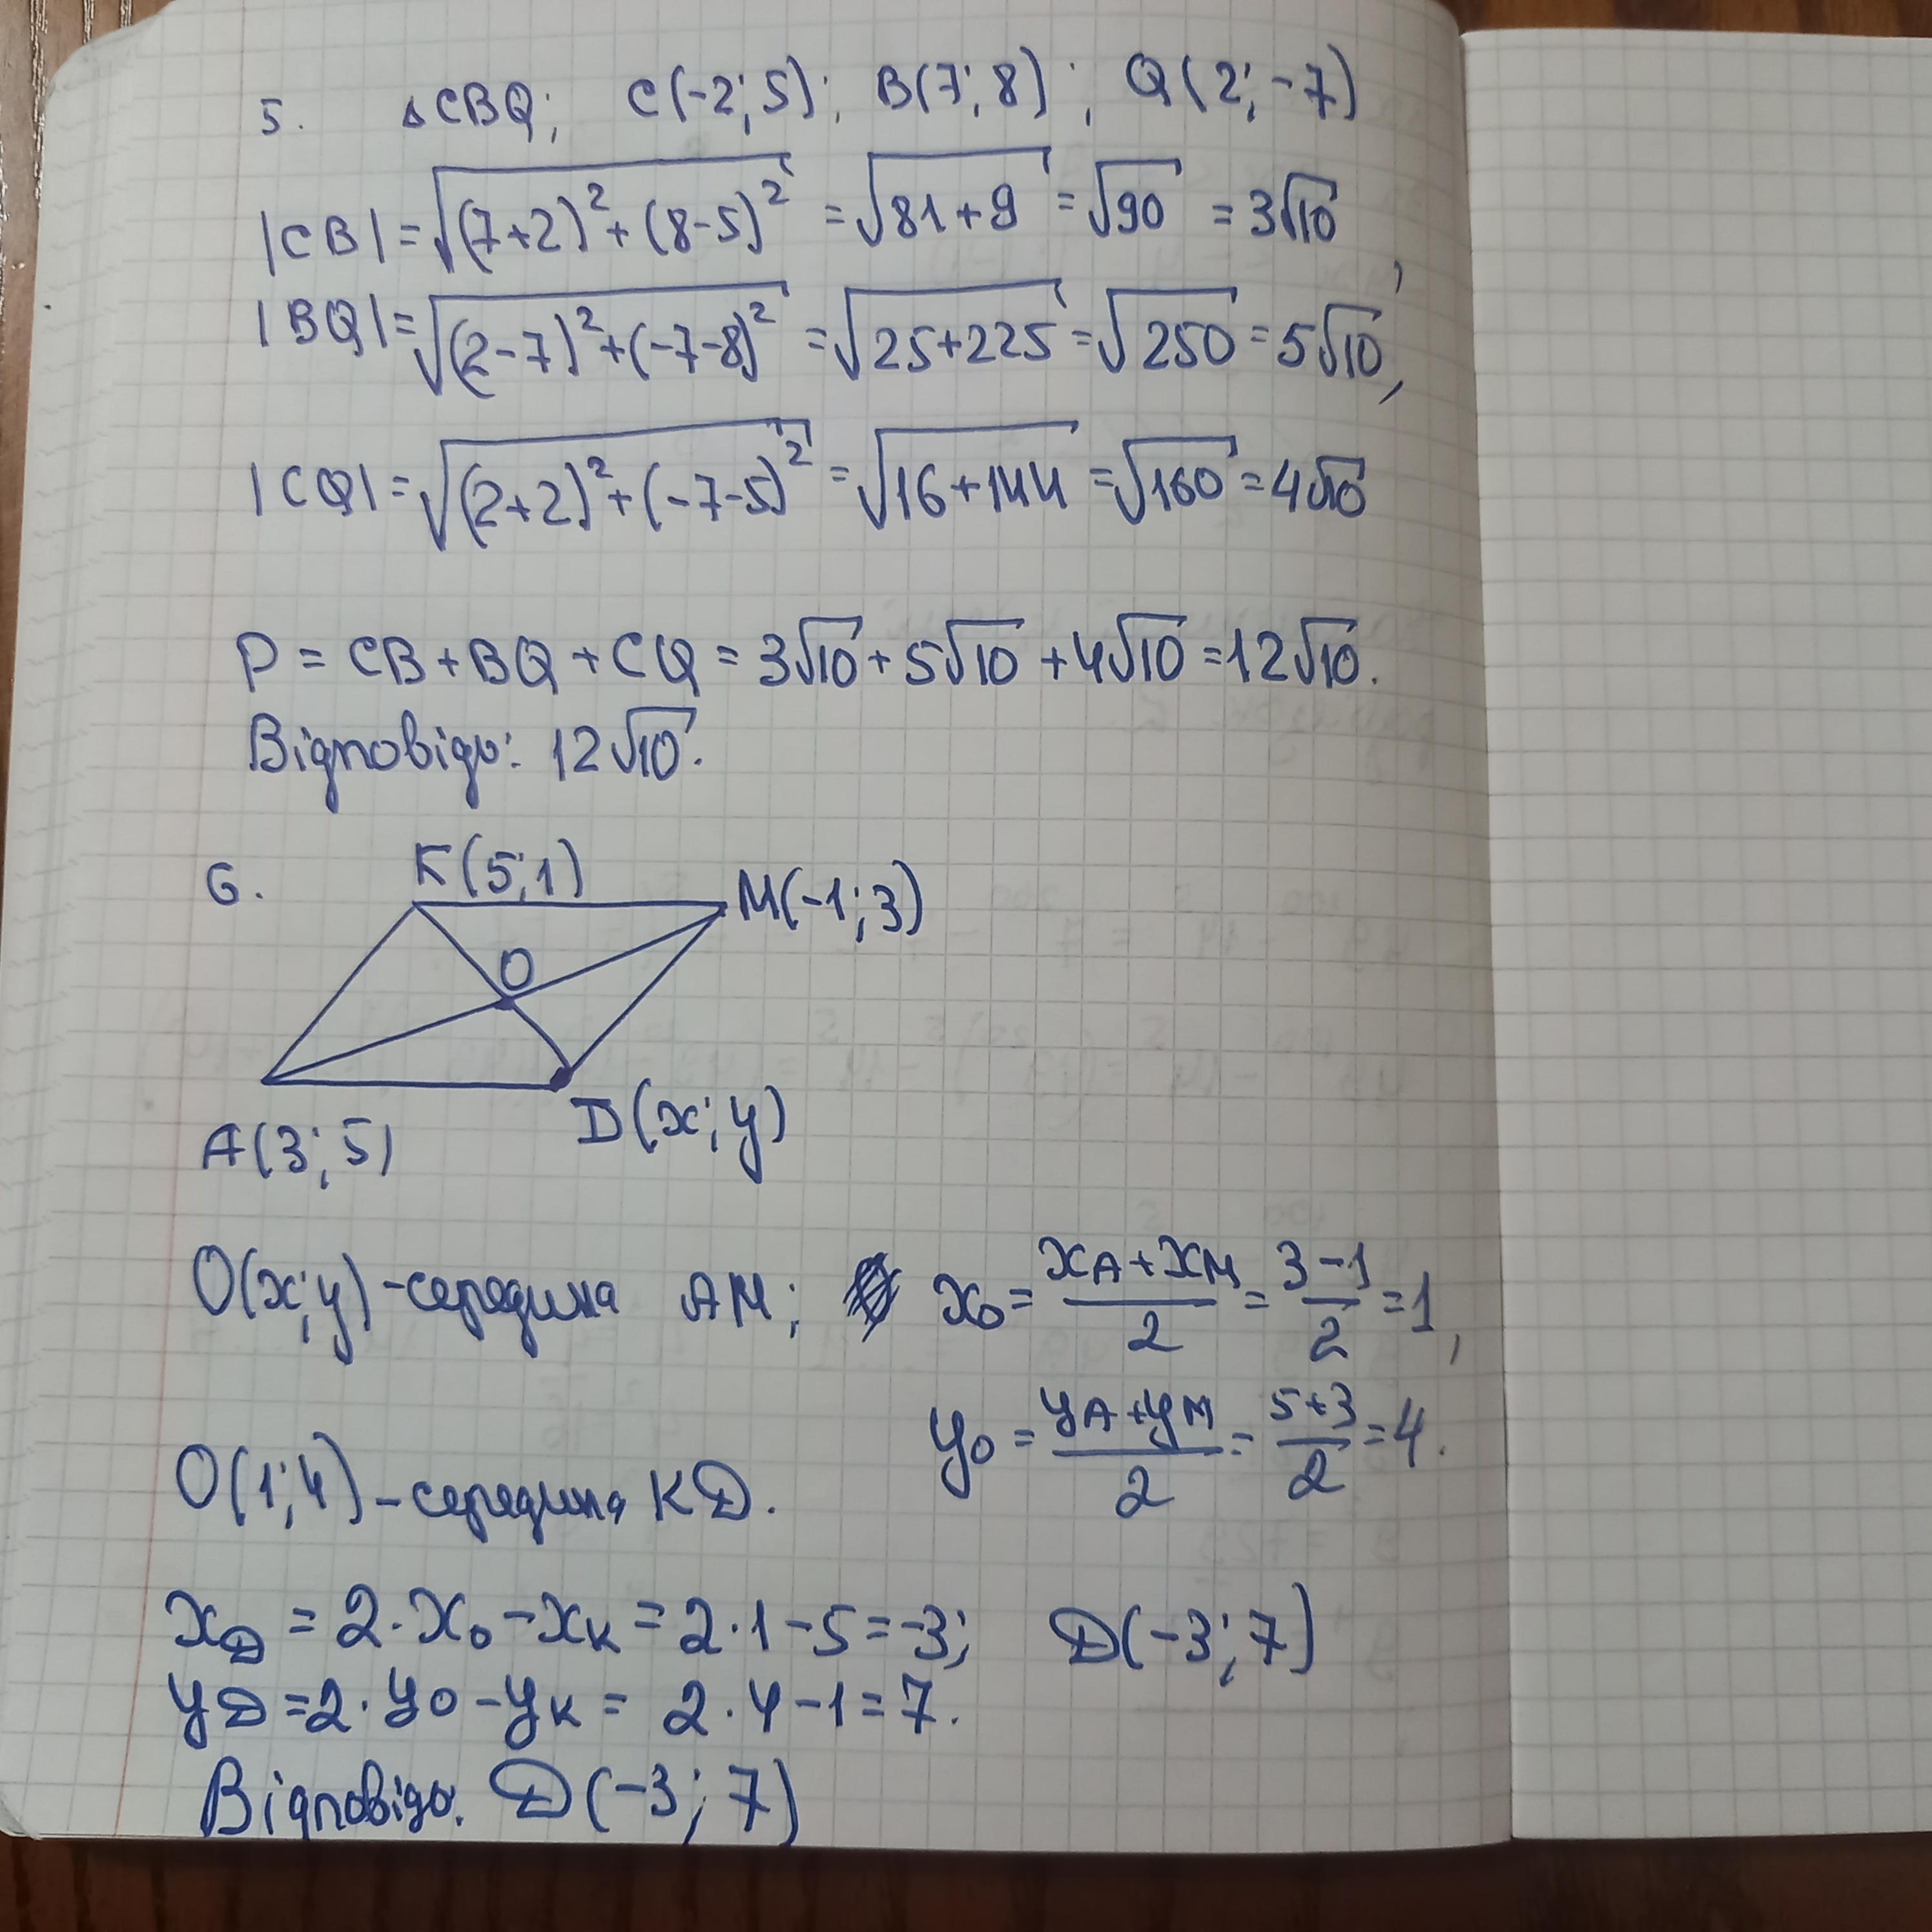 5. △CBQ; C(-2; 5); B(7; 8); Q(2; -7)
|CB| = √((7+2)² + (8-5)²) = √(81+9) = √90 = 3√10,
|BQ| = √((2-7)² + (-7-8)²) = √(25+225) = √250 = 5√10,
|CQ| = √((2+2)² + (-7-5)²) = √(16+144) = √160 = 4√10
P = CB + BQ + CQ = 3√10 + 5√10 + 4√10 = 12√10.
Відповідь: 12√10.
6. K(5; 1)
M(-1; 3)
O
A(3; 5)
D(x; y)
O(x; y) - середина AM; x₀ = (x_A + x_M)/2 = (3-1)/2 = 1,
y₀ = (y_A + y_M)/2 = (5+3)/2 = 4.
O(1; 4) - середина KD.
x_D = 2·x₀ - x_K = 2·1 - 5 = -3; D(-3; 7)
y_D = 2·y₀ - y_K = 2·4 - 1 = 7.
Відповідь. D(-3; 7)